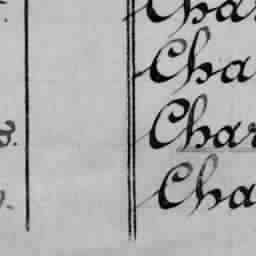 Char
Cha
Char
Cha